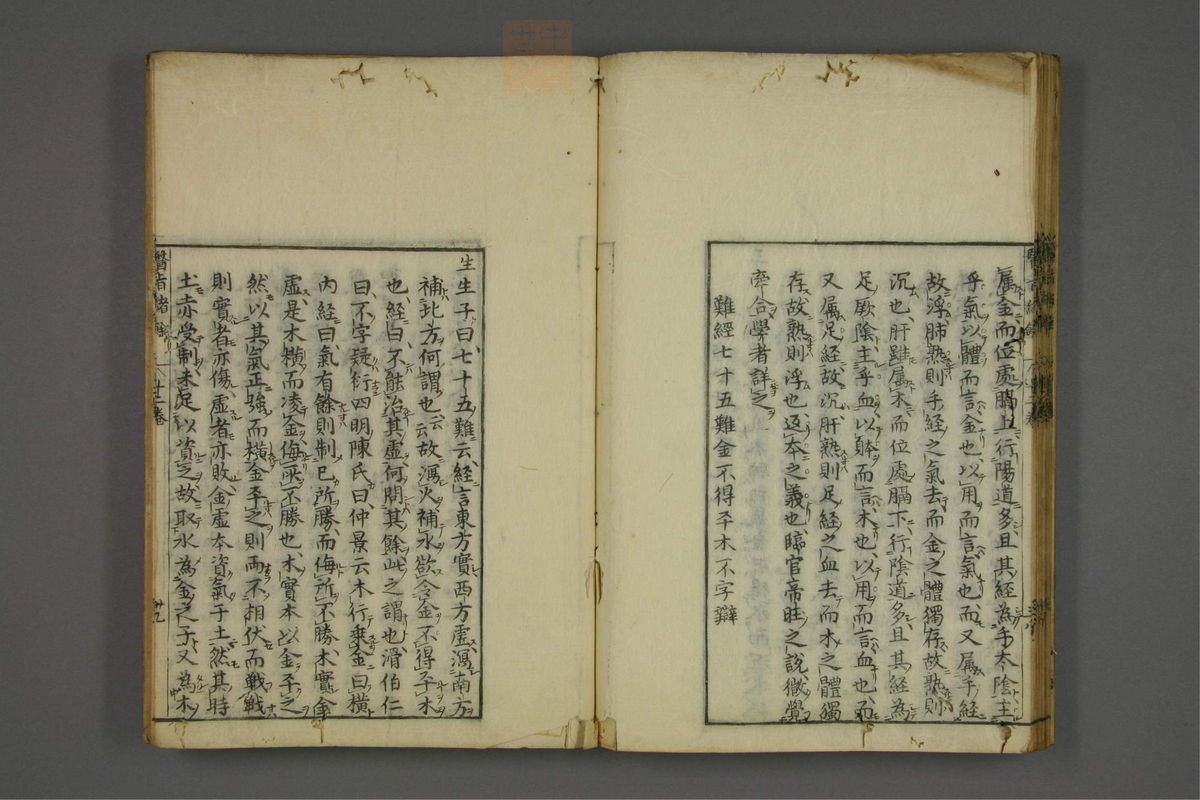 属金而位處膈上行陽道多且其經為手太陰主
乎氣以體而言金也以用而言氣也而又属手經
故浮肺熟則手經之氣去而金之體獨存故熟則
沉也肝雖属木而位處膈下行陰道多且其經為
足厥陰主乎血以躰而言木也以用而言血也而
又属足經故沉肝熟則足經之血去而木之體獨
存故熟則浮也返本之義也臨官帝旺之說
牽合學者詳之
難經七十五難金不得平木不字辯
生生子曰七十五難云經言東方實西方虛瀉南方
補北方何謂也云云故瀉火補水欲令金不得平木
也經曰不能治其虛何問其餘此之謂也滑伯仁
曰不字疑衍四明陳氏曰仲景云木行乗金曰橫
内經曰氣有餘則制已所勝而侮所不勝木實金
虛是木橫而凌金侮所不勝也木實本以金平之
然以其氣正強而橫金平之則両不相伏而戰戰
則實者亦傷虛者亦敗金虛本資氣于土然其時
土亦受制未足以資之故取水為金之子又為木
醫旨緒餘
卄二卷
卄九